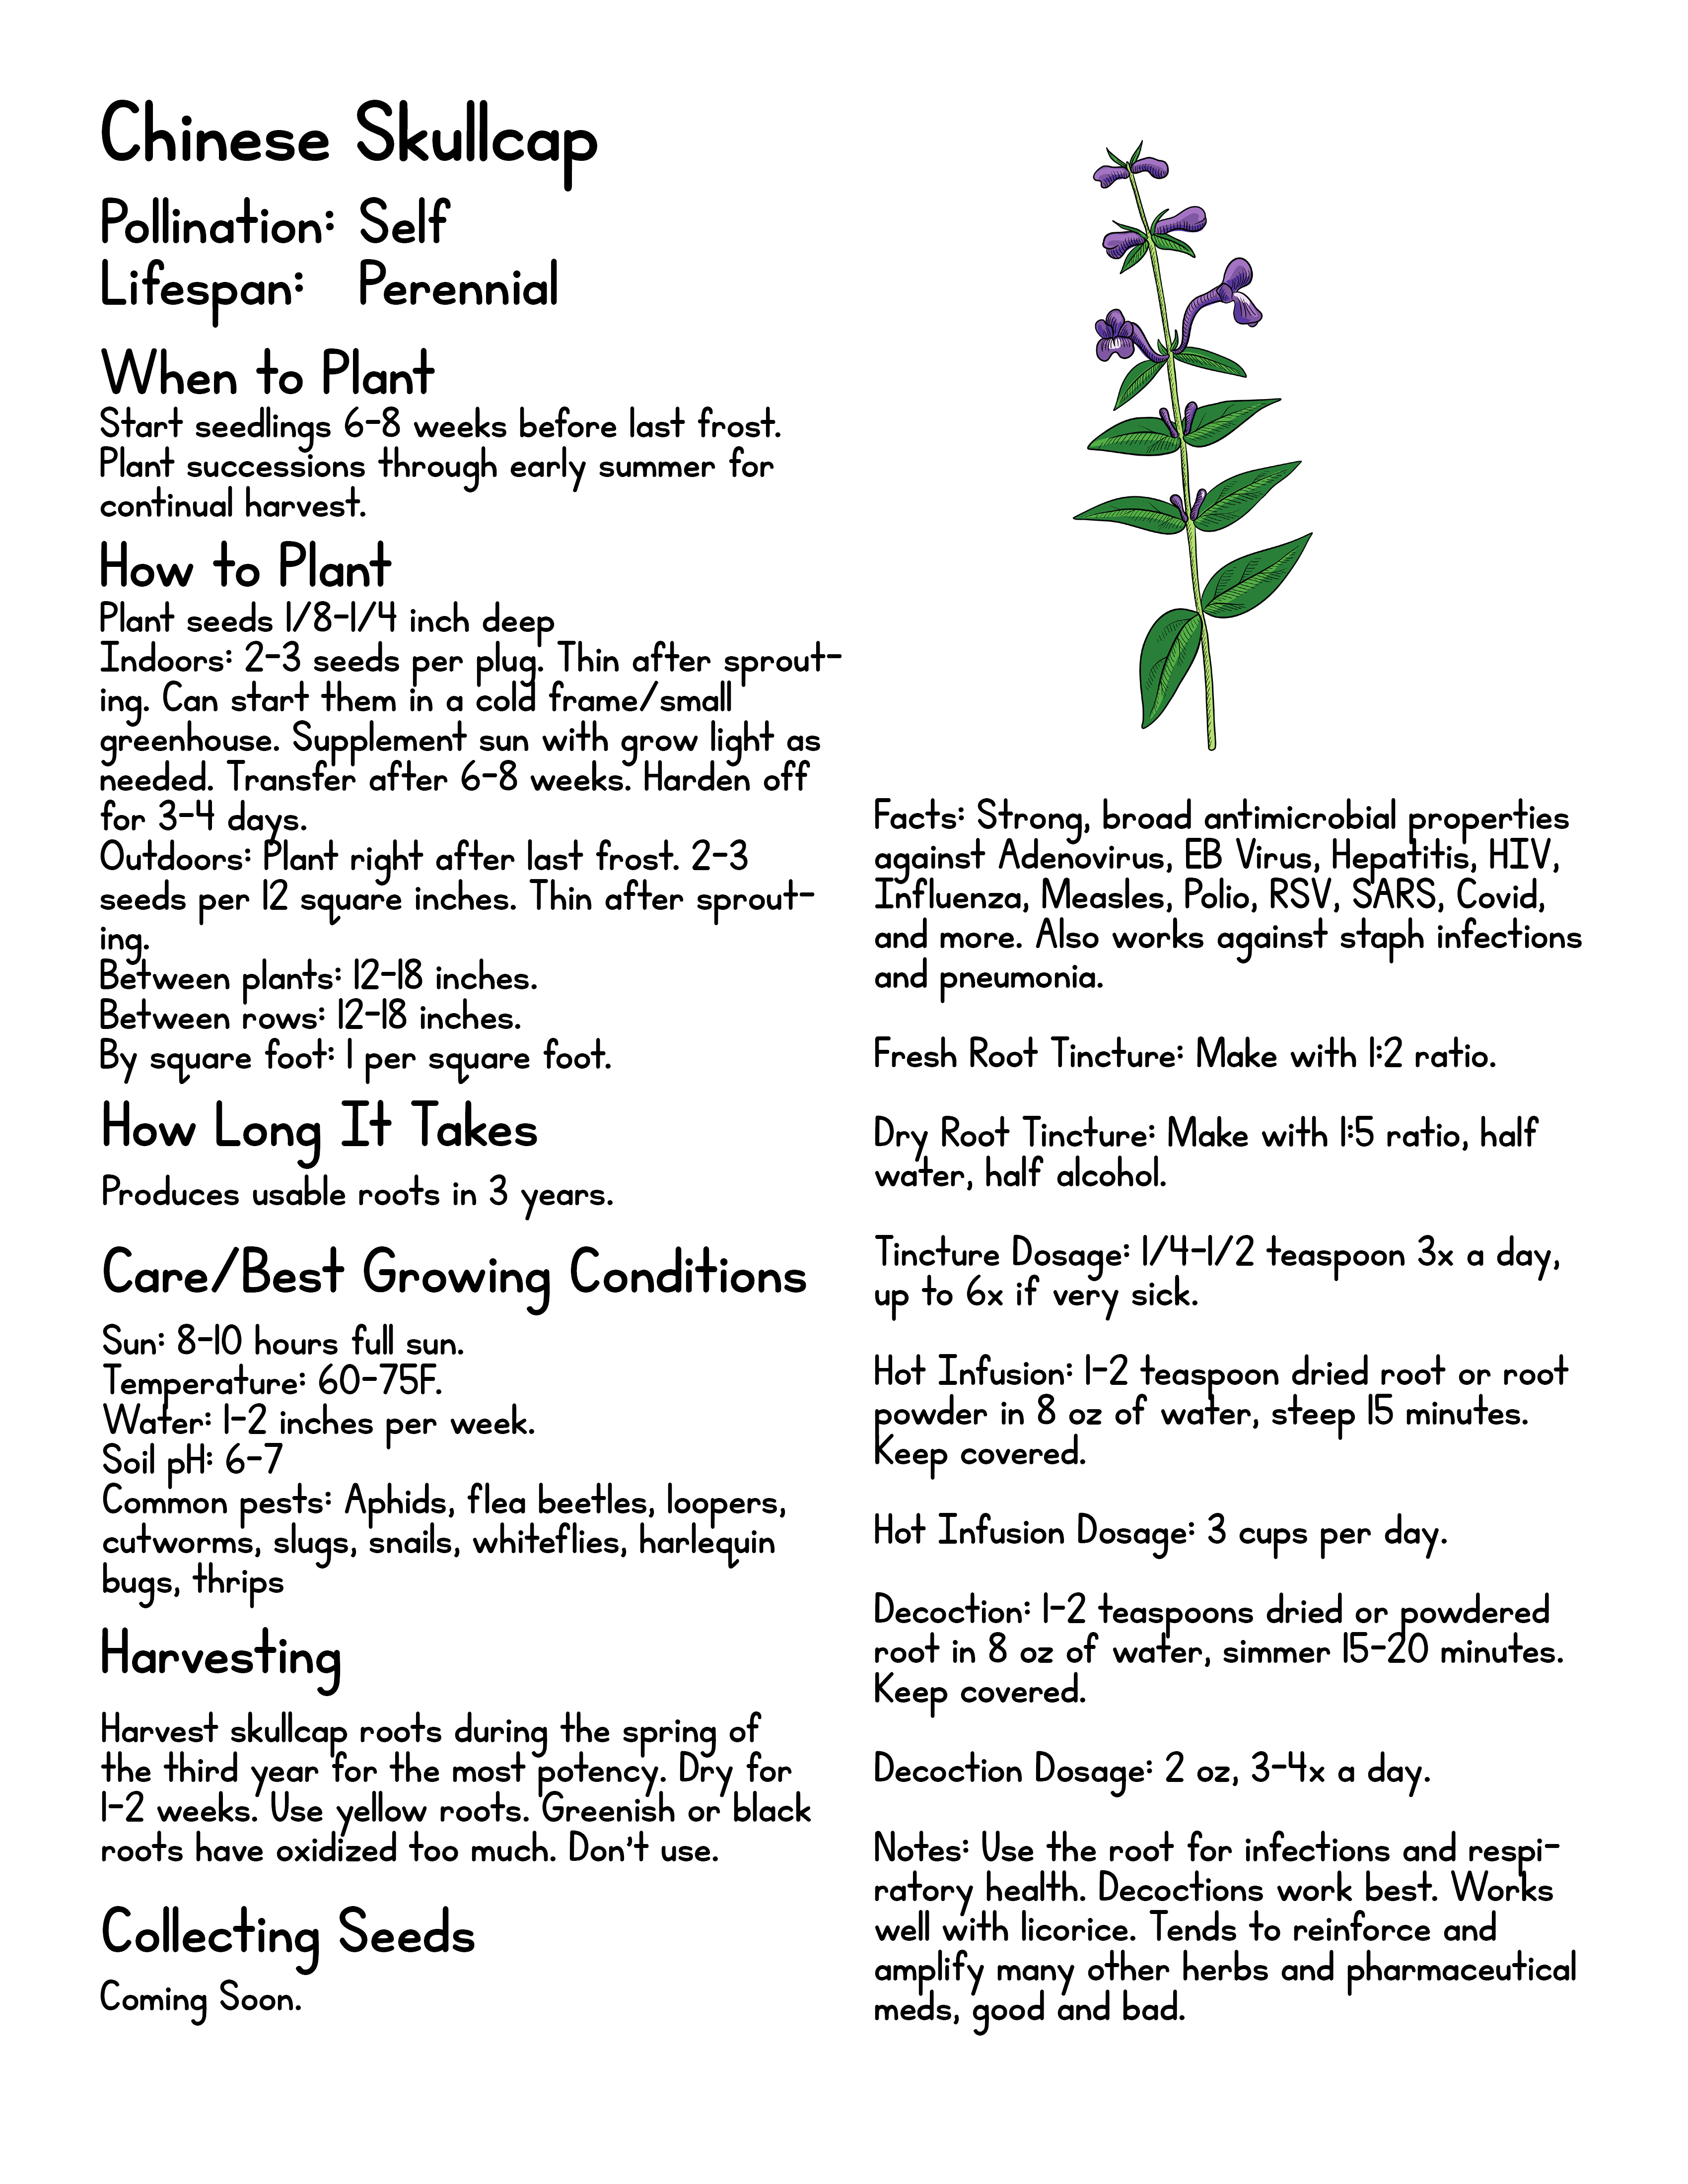 Chinese Skullcap
Pollination: Self
Lifespan: Perennial
When to Plant
Start seedlings 6-8 weeks before last frost.
Plant successions through early summer for
continual harvest.
How to Plant
Plant seeds 1/8-1/4 inch deep
Indoors: 2-3 seeds per plug. Thin after sprout-
ing. Can start them in a cold frame/small
greenhouse. Supplement sun with grow light as
needed. Transfer after 6-8 weeks. Harden off
for 3-4 days.
Outdoors: Plant right after last frost. 2-3
seeds per 12 square inches. Thin after sprout-
ing.
Between plants: 12-18 inches.
Between rows: 12-18 inches.
By square foot: 1 per square foot.
How Long It Takes
Produces usable roots in 3 years.
Care/Best Growing Conditions
Sun: 8-10 hours full sun.
Temperature: 60-75F.
Water: 1-2 inches per week.
Soil pH: 6-7
Common pests: Aphids, flea beetles, loopers,
cutworms, slugs, snails, whiteflies, harlequin
bugs, thrips
Harvesting
Harvest skullcap roots during the spring of
the third year for the most potency. Dry for
1-2 weeks. Use yellow roots. Greenish or black
roots have oxidized too much. Don't use.
Collecting Seeds
Coming Soon.
Facts: Strong, broad antimicrobial properties
against Adenovirus, EB Virus, Hepatitis, HIV,
Influenza, Measles, Polio, RSV, SARS, Covid,
and more. Also works against staph infections
and pneumonia.
Fresh Root Tincture: Make with 1:2 ratio.
Dry Root Tincture: Make with 1:5 ratio, half
water, half alcohol.
Tincture Dosage: 1/4-1/2 teaspoon 3x a day,
up to 6x if very sick.
Hot Infusion: 1-2 teaspoon dried root or root
powder in 8 oz of water, steep 15 minutes.
Keep covered.
Hot Infusion Dosage: 3 cups per day.
Decoction: 1-2 teaspoons dried or powdered
root in 8 oz of water, simmer 15-20 minutes.
Keep covered.
Decoction Dosage: 2 oz, 3-4x a day.
Notes: Use the root for infections and respi-
ratory health. Decoctions work best. Works
well with licorice. Tends to reinforce and
amplify many other herbs and pharmaceutical
meds, good and bad.